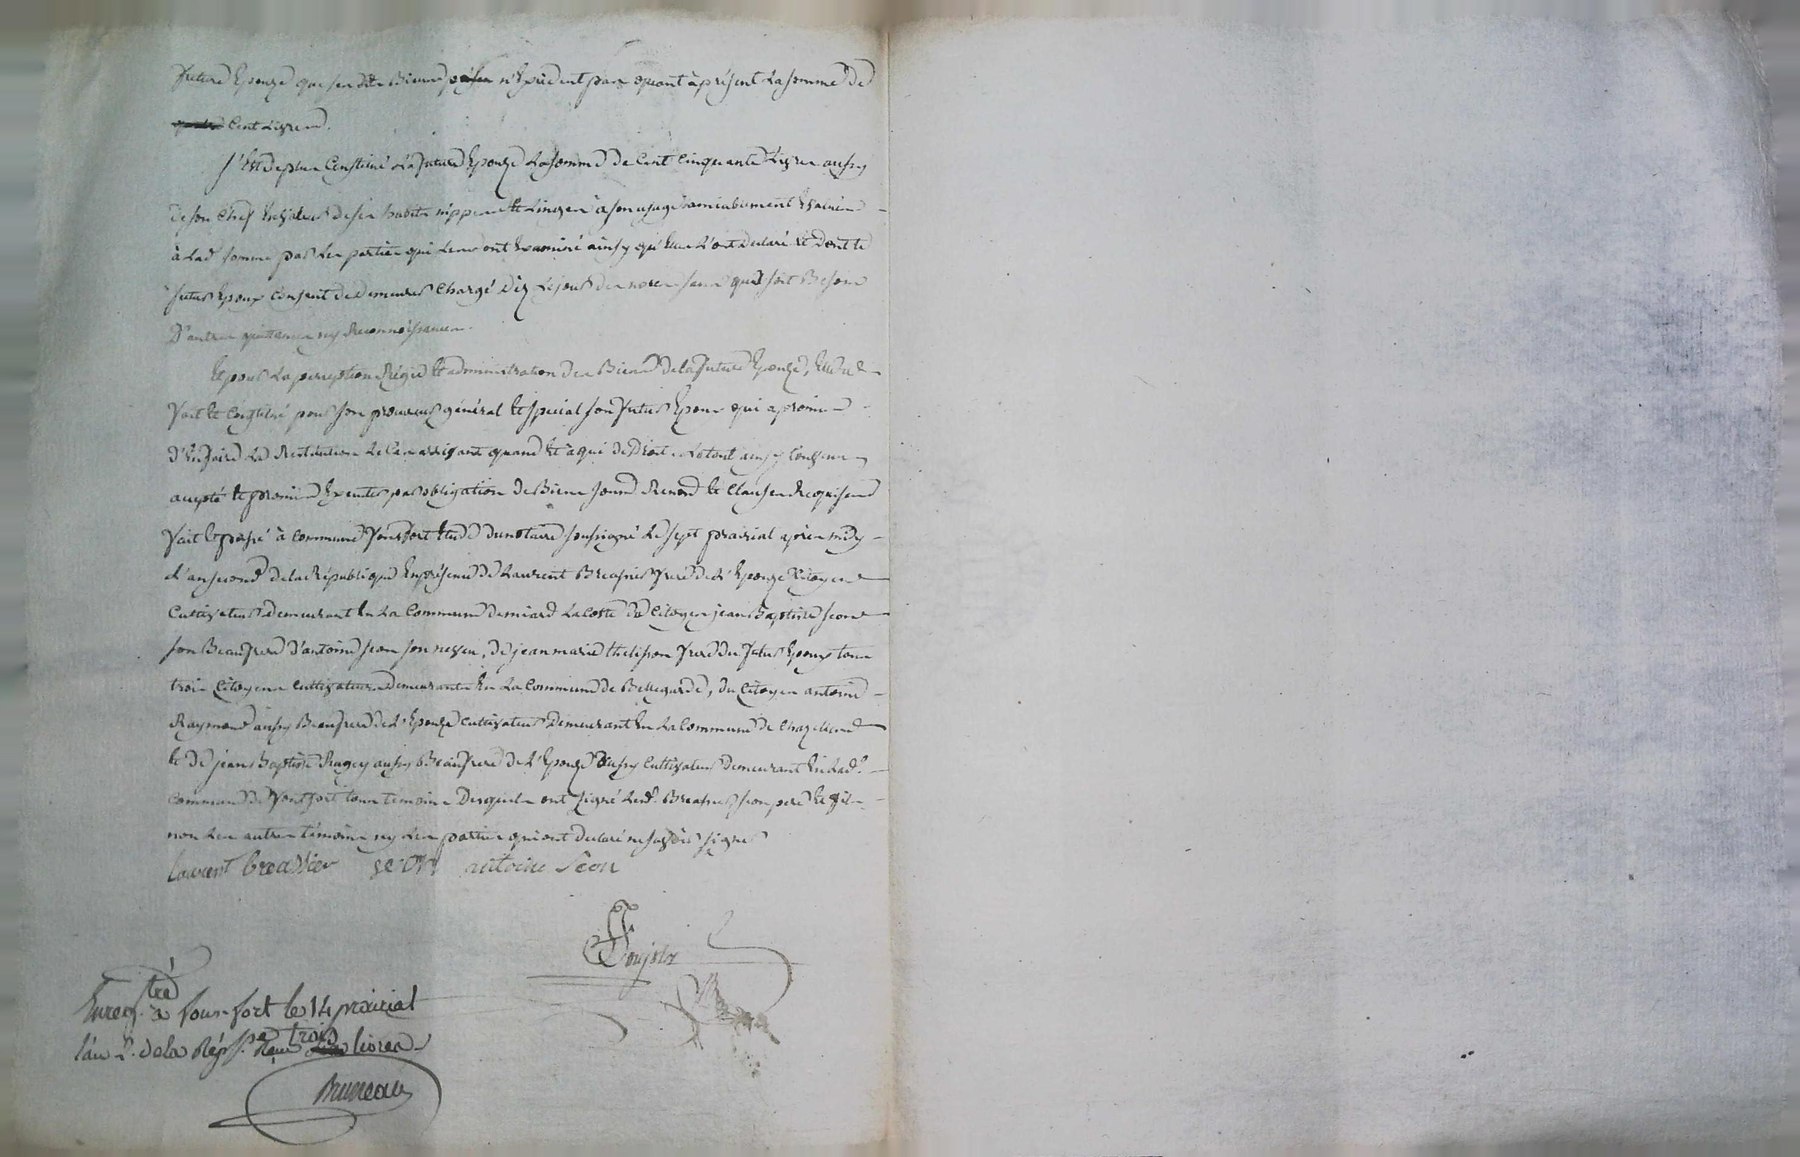 future Epouze que sesdits Biens n'Exsédent pas quant à présent la somme de
Cent Livres.
S'Est de plus Constitué la future Epouze la somme de Cent Cinquante Livres aussy
de son Chef En valeur de ses habits nippes et Linges à son usage amiablement Evalués
à lad. somme par les parties qui les ont Examiné ainsy qu'elles l'ont declaré et dont le
futur Epoux Consent de demeurer chargé dez le jour des noces sans qu'il soit Besoin
D'autres quittances ny Reconnoissances.
Et pour la perception Régie et administration des Biens de la future Epouze, Elle a
fait et Constitué pour son procureur général et spécial son futur Epoux qui a promis
d'En faire la Restitution le Cas arrivant quand et à qui de Droit. Le tout ainsy Convenu
accepté et promis Executer par obligation de Biens soumd. Renond. et Clauses Requises
fait et passé à Commune fonsfort Etude du notaire soussigné le sept prairial après midy
L'an second de la République En présence de Laurent Breassier frere de l'Epouze Citoyen
Cultivateur demeurant En la Commune de miard La Coste du Citoyen jean Baptiste seon
son Beaufrere d'antoine seon son neveu, de jean marie thelisson frere du futur Epoux tous
trois Citoyens Cultivateurs demeurants En la Commune de Bellegarde, du Citoyen antoine
Raymond aussy Beaufrere de l'Epouze Cultivateur demeurant En la Commune de Chazelles
et de jean Baptiste Ragey aussy Beaufrere de l'Epouze aussy Cultivateur demeurant En lad.
Commune de fonsfort tous temoins desquels ont signé led. Breassier, seon pere et fils
non les autres témoins ny les parties qui ont declaré ne savoir signer
laurent breassier seon antoine Seon
Enregtré à fonsfort le 14 prairial
l'an 2e. de la Répe. Reçu trois livres
Bruneau